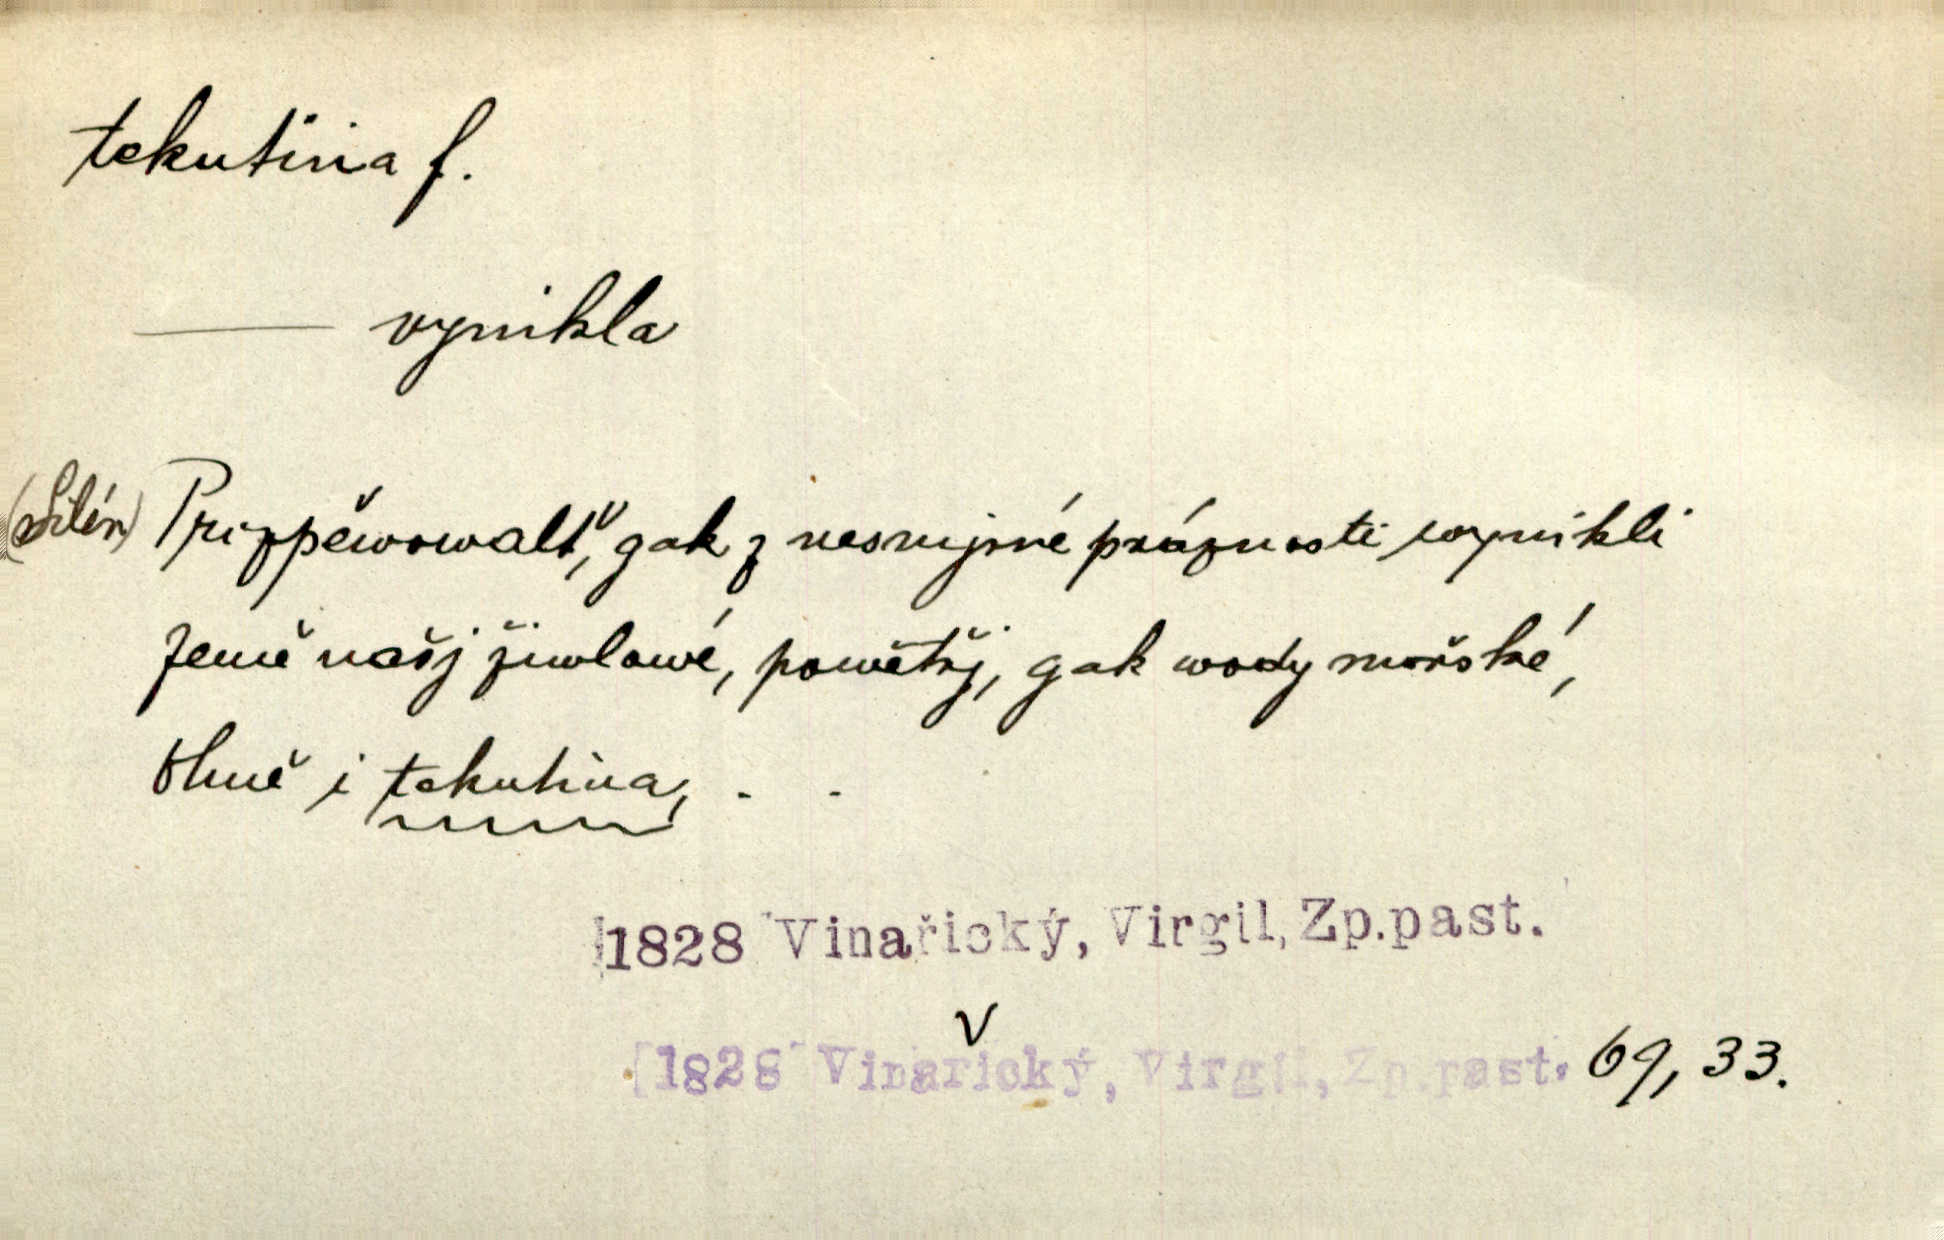 tekutina f.
— vynikla
(Silén) Prizpěwowalť, gak z nesmjrné práznosti wynikli
Země našj žiwlowé, powětřj, gak wody mořské,
Ohně i tekutina, . .
[1828 Vinařický, Virgil, Zp.past.
V
[1828 Vinařický, Virgil, Zp.past. 69, 33.